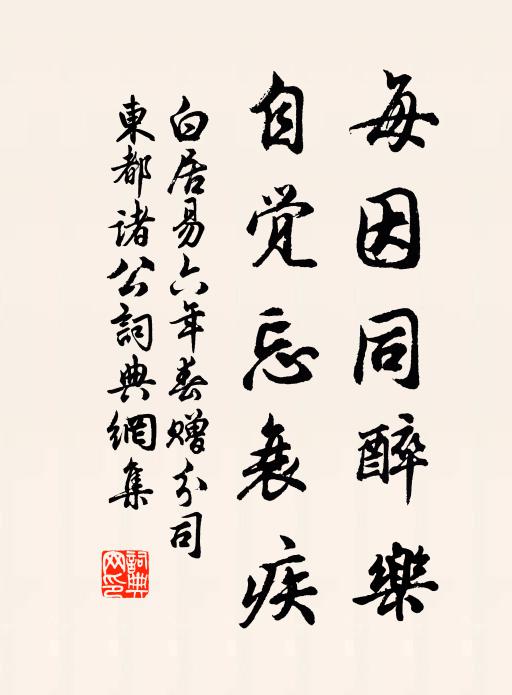 每因同醉樂
自覚忘衰疾
白居易六年春赠分司
東都诸公詞典網集
詞典网印